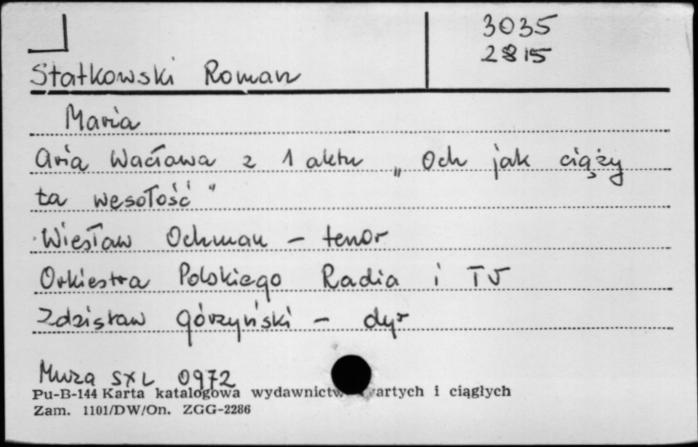 3035
2815
Statkowski Roman
Maria
Aria Wacława z 1 aktu „Och jak ciąży
ta wesołość"
Wiesław Ochman - tenor
Orkiestra Polskiego Radia i TV
Zdzisław Górzyński - dyr
Muza SXL 0972
Pu-B-144 Karta katalogowa wydawnictw artych i ciągłych
Zam. 1101/DW/On. ZGG-2286